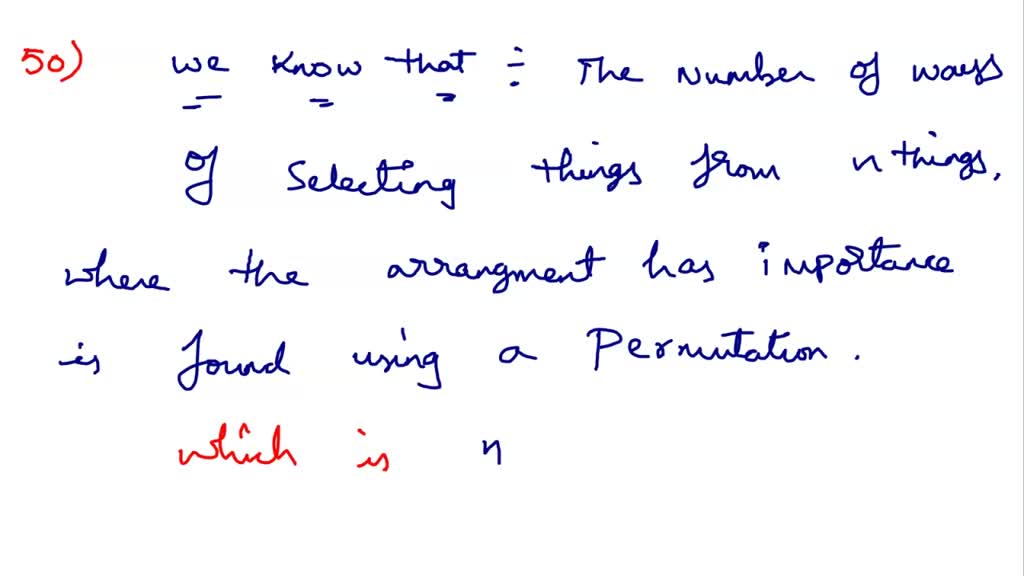 50) we know that ÷ The Number of ways
of Selecting things from n things,
where the arrangment has importance
is found using a Permutation.
which is n